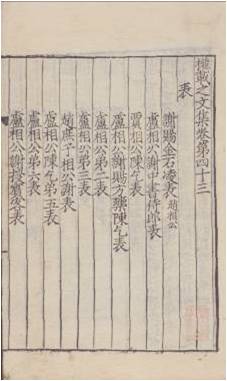 權載之文集卷第四十三
表
謝賜金石凌表趙相公
盧相公謝中書侍郎表
賈相公陳乞表
盧相公謝賜方藥陳乞表
盧相公第二表
盧相公第三表
趙庶子相公謝表
盧相公陳乞第五表
盧相公第六表
盧相公謝授賓客表